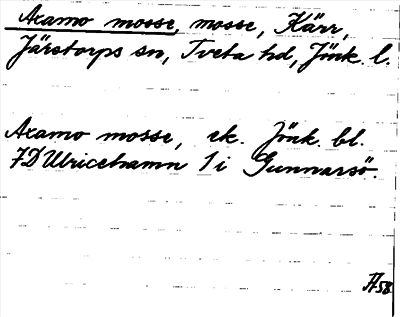 Axamo mosse, mosse, Kärr,
Järstorps sn, Tveta hd, Jönk. l.
Axamo mosse, ek. Jönk. bl.
7D Ulricehamn 1 i Gunnarsö.
Å58